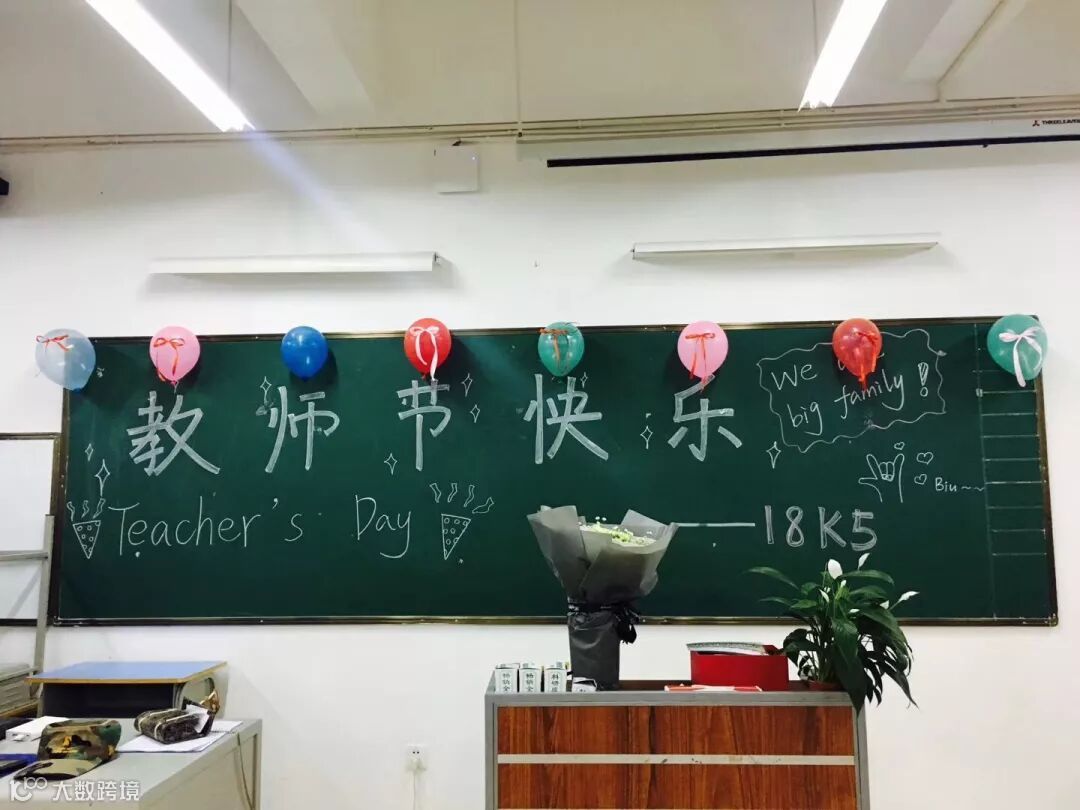 THREELEAVES
We
big family!
教师节快乐
Biu~~
Teacher's Day
——18K5
大数跨境